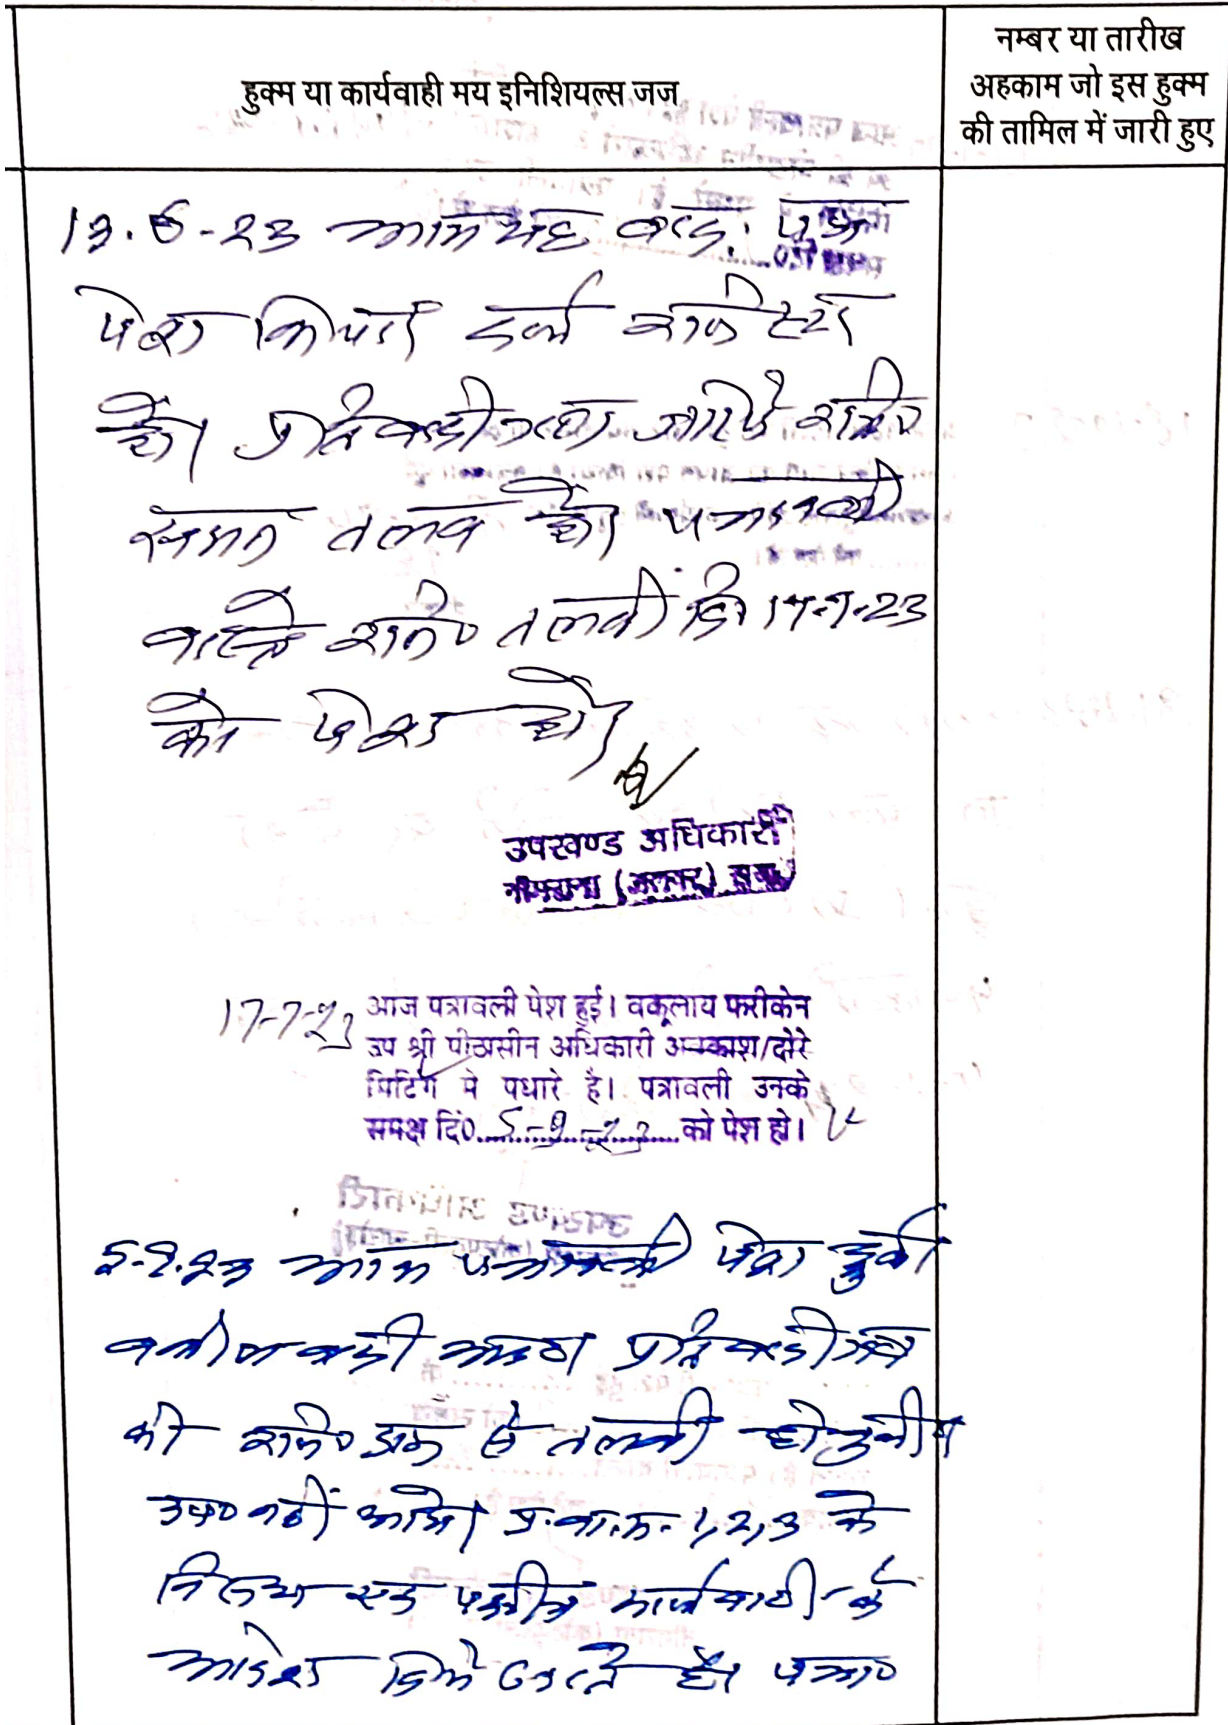 हुक्म या कार्यवाही मय इनिशियल्स जज
नम्बर या तारीख
अहकाम जो इस हुक्म
की तामिल में जारी हुए
13.6-23 आज यह वाद पत्र
पेश किया। दर्ज रजिस्टर
हो। प्रतिवादीगण जरिये रजि०
सम्मन तलब हो। पत्रावली
वास्ते रजि० तलबी दि. 17-7-23
को पेश हो।
उपखण्ड अधिकारी
नीमराना (अलवर) राज०
17-7-23 आज पत्रावली पेश हुई। वकूलाय फरीकेन
उप श्री पीठासीन अधिकारी अवकाश/दोरे
मिटिंग मे पधारे है। पत्रावली उनके
समक्ष दि०....5-9-23....को पेश हो।
5-9-23 आज पत्रावली पेश हुयी
वकील वादी प्रतिवादीगण
की रजि० डाक से तलबी हो चुकी
उप० नहीं आये। प्र.वा.न. 1,2,3 के
खिलाफ एक पक्षीय कार्यवाही के
आदेश दिये जाते है। पत्रा०